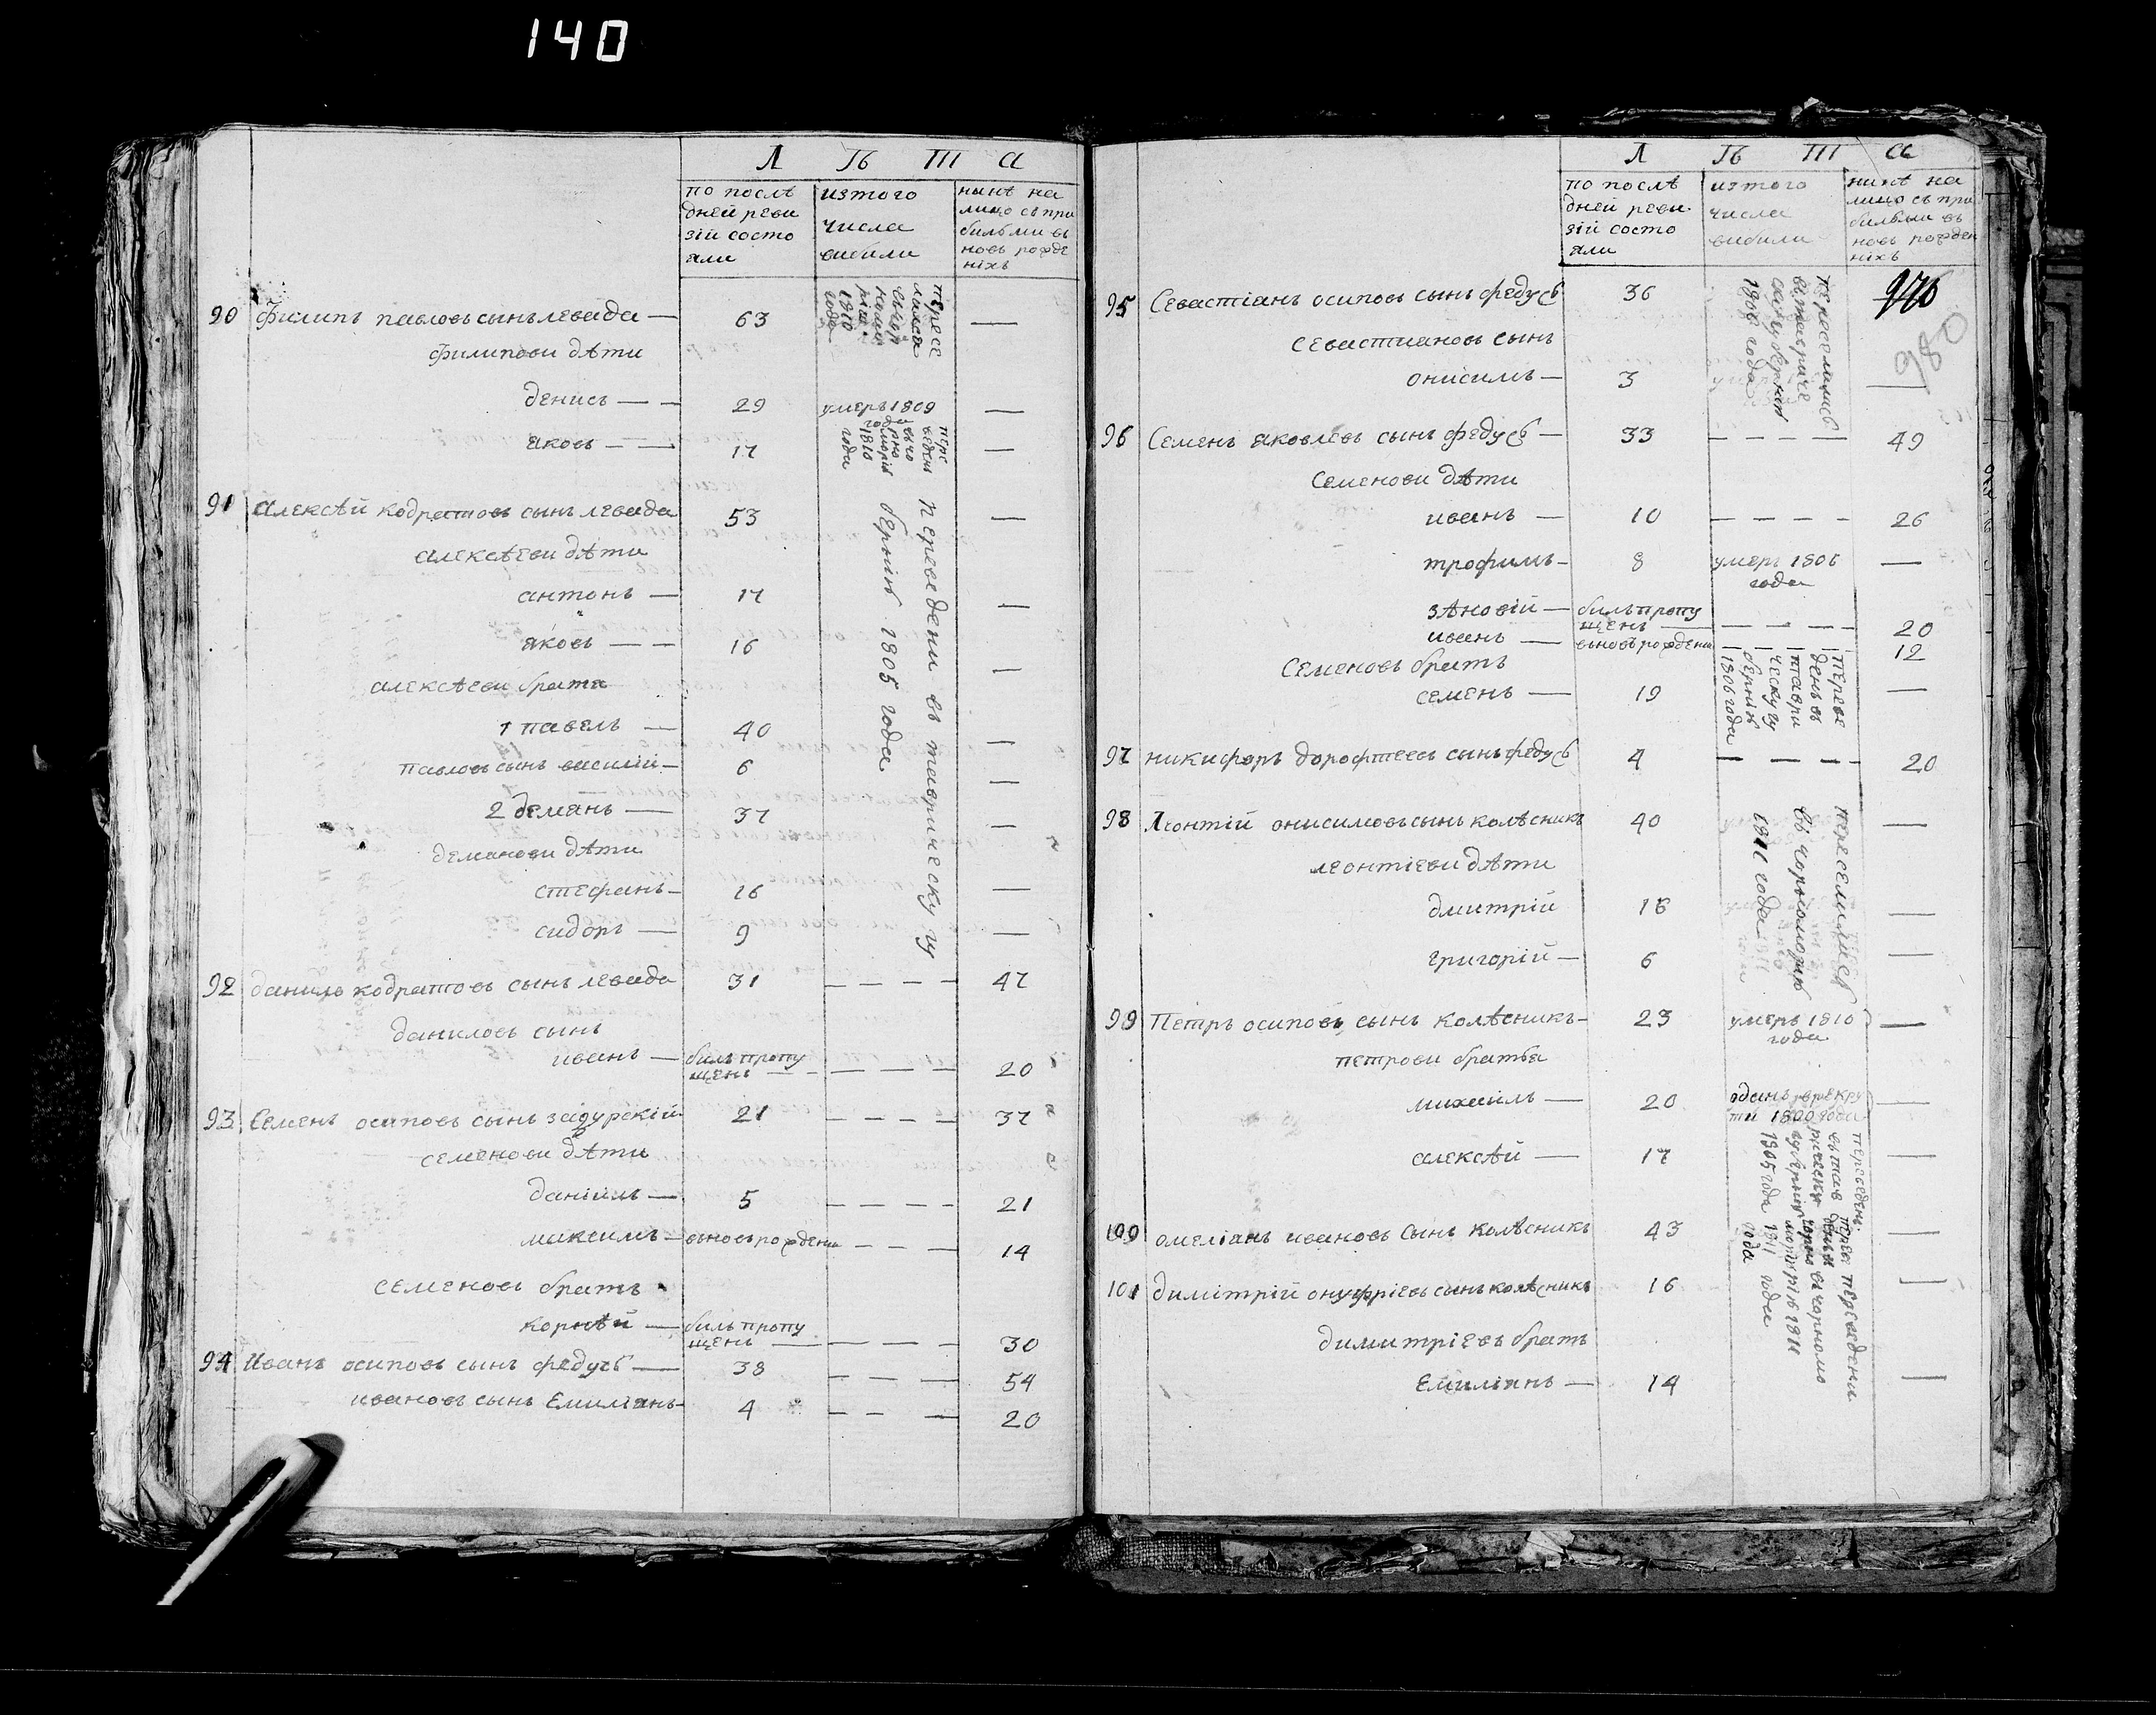 140
Л Ѣ Т а
по послѣ
дней реви
зіи состо
яли
изтого
числа
вибили
нинѣ на
лицо съ при
билыми въ
новь рожде
ніхъ
90 Филипъ павловъ сынъ левада — 63 —
Пересе
лился
1810
года
Филипови дѣти
денисъ — — 29 умеръ 1809 —
яковъ — — 17 —
1810
года
91 алексѣй кодратовъ сынъ левада 53 —
переведени въ таврическу гу
бернію 1805 года
алексѣеви дѣти
антонъ — 17 —
яковъ — — 16 —
алексѣеви братя
1 павелъ — 40 —
павловъ сынъ василій — 6 —
2 демянъ — 37 —
демянови дѣти
стефанъ — 16 —
сидоръ — 9 —
92 данило кодратовъ сынъ левада 31 — — — — 47
даниловъ сынъ
иванъ — билъ пропу
щенъ — — — — — — 20
93 Семенъ осиповъ сынъ задурскій 21 — — — — 37
семенови дѣти
даніилъ — 5 — — — — 21
максимъ — вьновь рождени — — — 14
семеновъ братъ
корнѣй — билъ пропу
щенъ — — — — — 30
94 Иванъ осиповъ сынъ федусь — 38 — — — 54
ивановъ сынъ Емиліанъ — 4 — — — 20
Л Ѣ Т а
по послѣ
дней реви
зіи состо
яли
изтого
числа
вибили
нинѣ на
лицо съ при
билыми въ
новь рожден
ніхъ
976
980
95 Севастіанъ осиповъ сынъ федусь 36
переселились
в тавриче
ску губернію
1908 года
севастиановъ сынъ
онисимъ — 3 —
96 Семенъ яковлевъ сынъ федусь — 33 — — — — 49
Семенови дѣти
иванъ — 10 — — — — 26
трофимъ — 8 умеръ 1806
года —
зѣновій — билъ пропу
щенъ — — — — — 20
иванъ — вьновь рождени — — — — 12
Семеновъ братъ
семенъ — 19 —
переве
денъ в
таври
ческу гу
бернію
1806 года
97 никифоръ дорофтеевъ сынъ федусь 4 — — — — 20
98 Леонтій онисимовъ сынъ колѣсникъ 40 —
переселился
въ чорноморію
1811 года
леонтіеви дѣти
дмитрій 18 —
григорій — 6 —
99 Петръ осиповъ сынъ колѣсникъ — 23 умеръ 1810
года —
петрови братья
михаилъ — 20 одданъ в рекру
ти 1800 года —
алексѣй — 17 —
переведенъ
в тав
рическу
губернію
1805 года
100 омеліанъ ивановъ сынъ колѣсникъ 43 —
1811
года
101 димітрій онуфріевъ сынъ колѣсникъ 16 —
переведени
в чорномо
рію 1811
года
димитріевъ братъ
Емиліанъ — 14 —